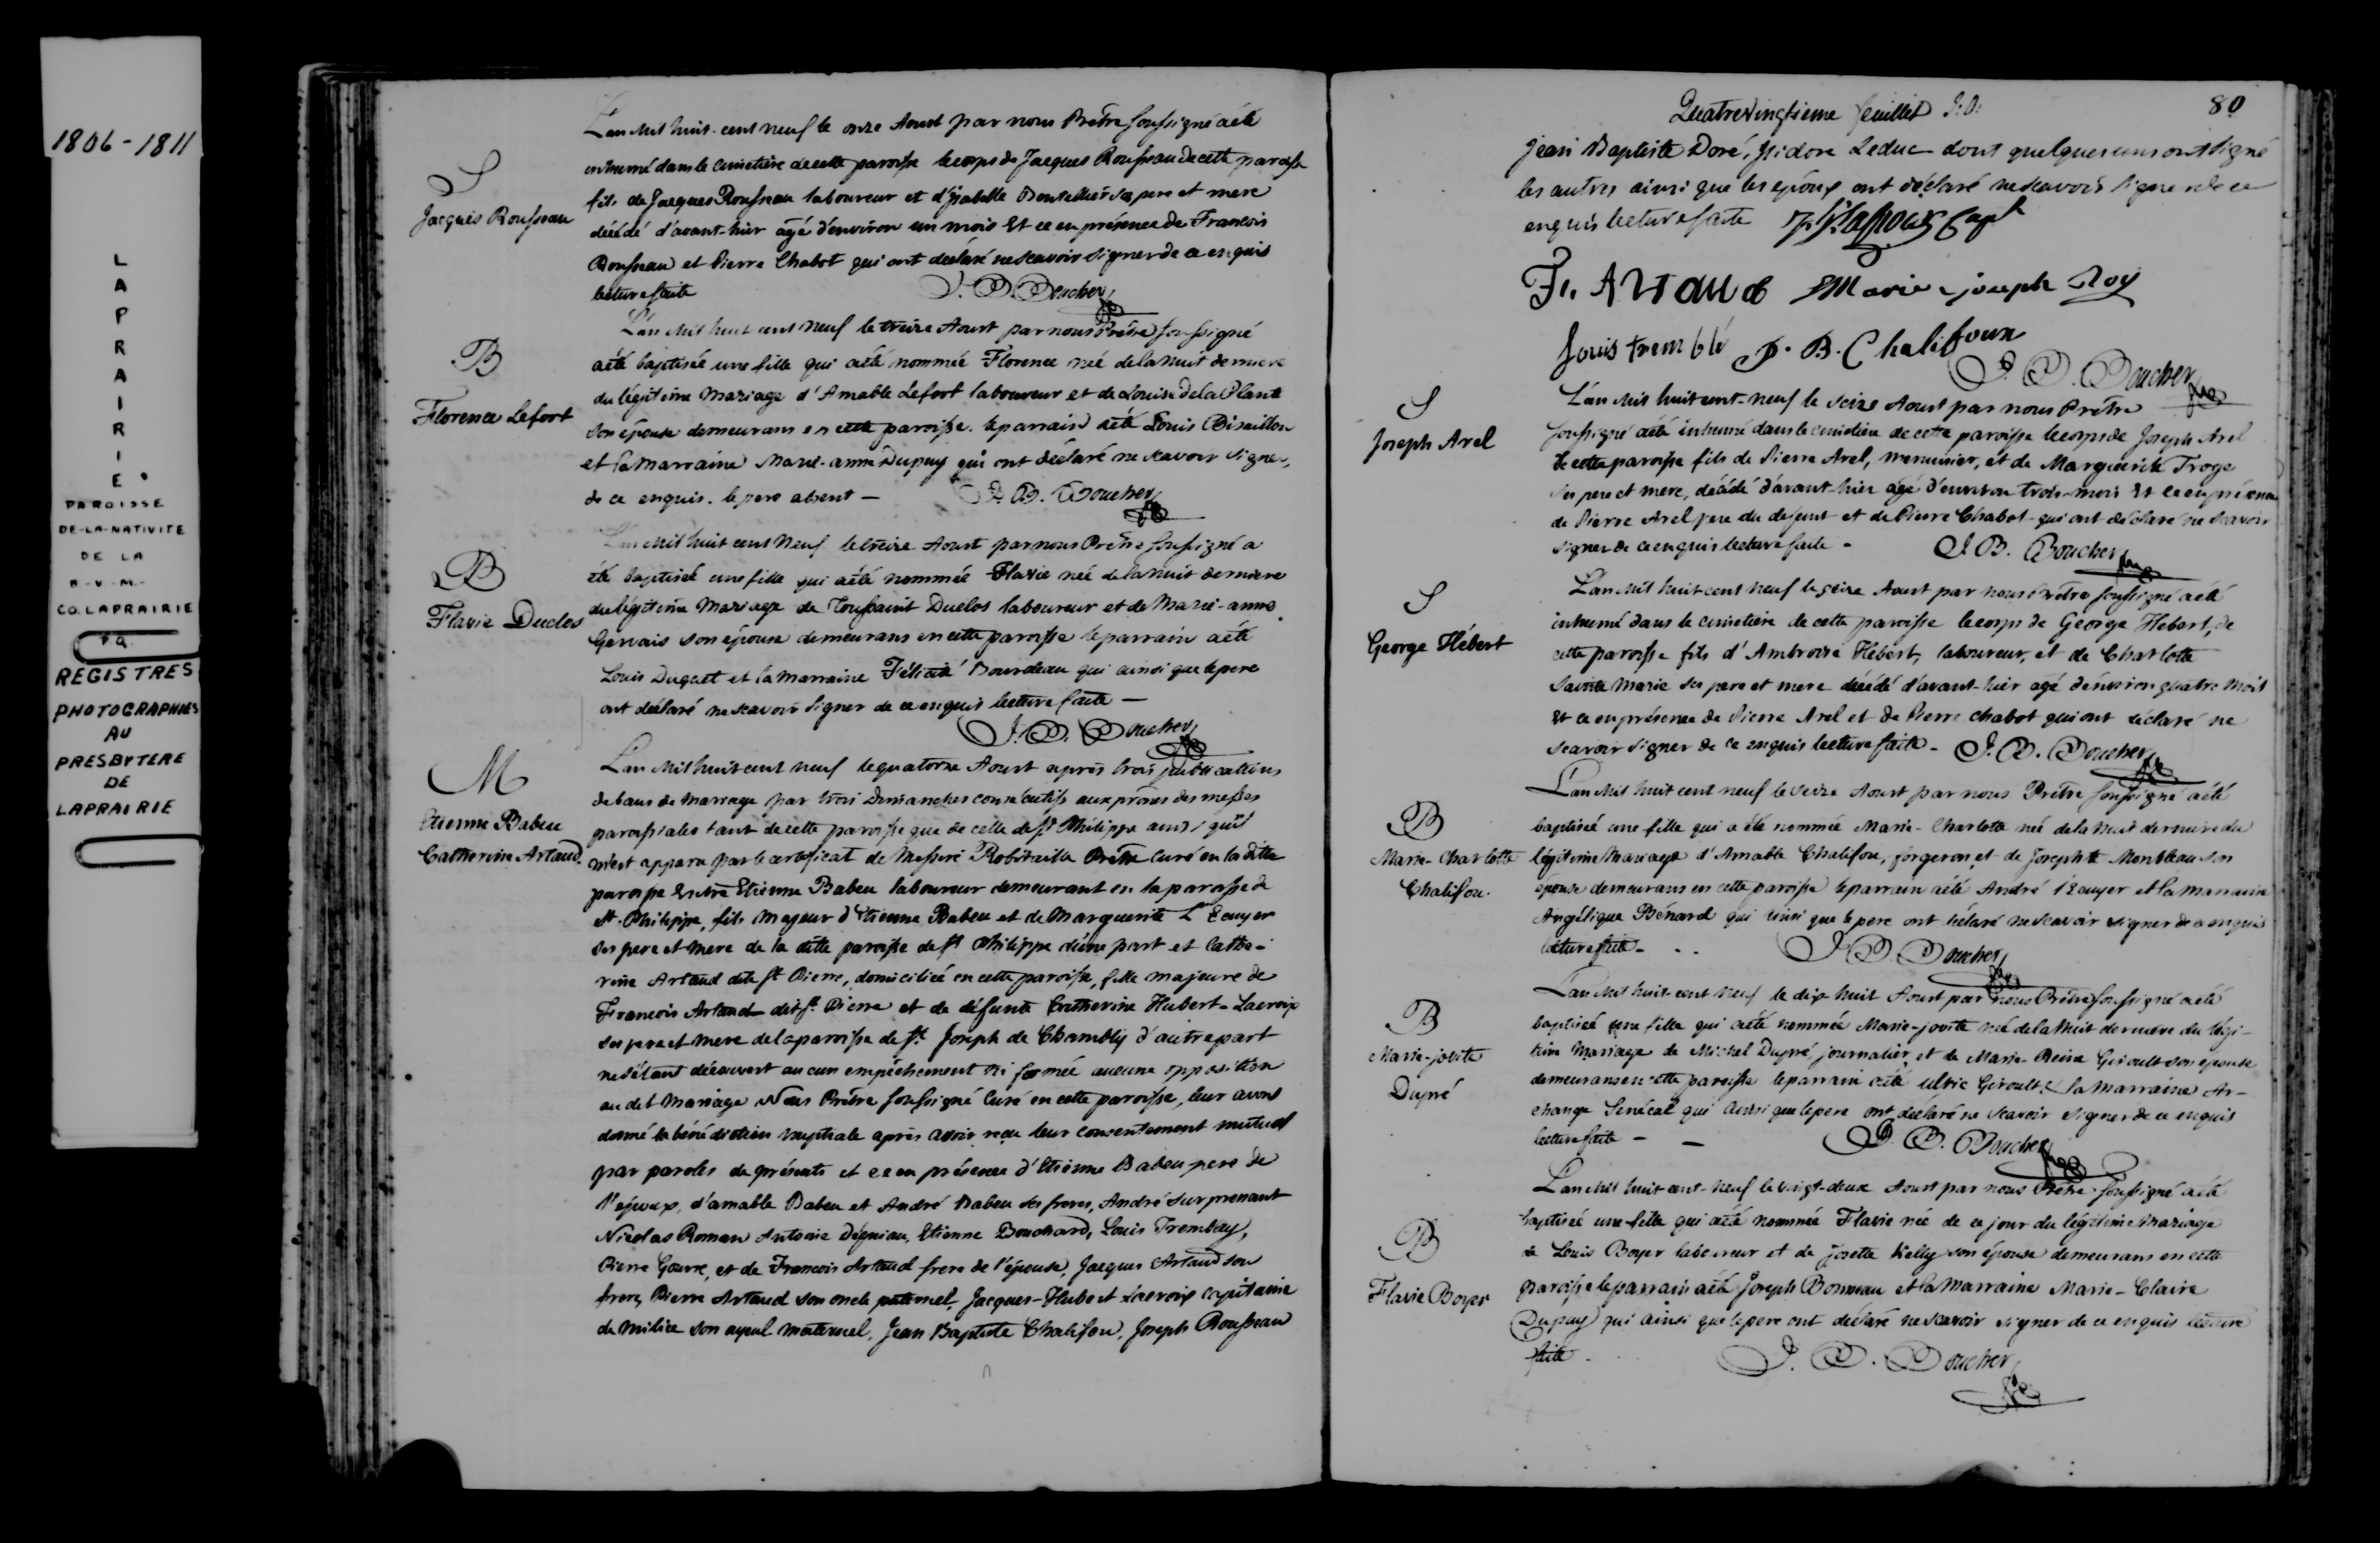 1806-1811
LAPRAIRIE.
PAROISSE
DE-LA-NATIVITE
DE LA
B-V-M-
CO. LAPRAIRIE
P.Q.
REGISTRES
PHOTOGRAPHIES
AU
PRESBYTERE
DE
LAPRAIRIE
S
Jacques Rousseau
L'an Mil huit-cent neuf le onze Aoust par nous Prêtre soussigné a été
inhumé dans le cimetière de cette paroisse le corps de Jacques Rousseau de cette paroisse
fils de Jacques Rousseau laboureur et d'Isabelle Bouteiller ses pere et mere
décédé d'avant-hier agé d'environ un mois Et ce en présence de Francois
Rousseau et Pierre Chabot qui ont déclaré ne scavoir signer de ce enquis
lecture faite J. B. Boucher
B
Florence Lefort
L'an Mil huit cent neuf le treize Aoust par nous Prêtre soussigné
a été baptisée une fille qui a été nommée Florence née de la nuit derniere
du légitime Mariage d'Amable Lefort laboureur et de Louise de la Plante
son épouse demeurans en cette paroisse. le parrain a été Louis Bisaillon
et la Marraine Marie-anne Dupuy qui ont déclaré ne scavoir signer,
de ce enquis. le pere absent — J. B. Boucher
B
Flavie Duclos
L'an Mil huit cent Neuf le treize Aoust par nous Prêtre soussigné a
été baptisée une fille qui a été nommée Flavie née de la nuit derniere
du légitime Mariage de Toussaint Duclos laboureur et de Marie-anne
Gervais son épouse demeurans en cette paroisse le parrain a été
Louis Duquet et la Marraine Félicité Bourdeau qui ainsi que le pere
ont déclaré ne scavoir signer de ce enquis lecture faite —
J. B. Boucher
M
Etienne Babeu
Catherine Artaud
L'an Mil huit cent neuf le quatorze Aoust après trois publications
de bans de Mariage par trois Dimanches consécutifs aux prônes des messes
paroissiales tant de cette paroisse que de celle de St Philippe ainsi qu'il
m'est apparu par le certificat de Messire Robitaille Prêtre Curé en la ditte
paroisse Entre Etienne Babeu laboureur demeurant en la paroisse de
St. Philippe, fils Majeur d'Etienne Babeu et de Marguerite L'Ecuyer
ses pere et mere de la ditte paroisse de St Philippe d'une part et Cathe-
rine Artaud dite St Pierre, domiciliée en cette paroisse, fille majeure de
Francois Artaud dit St. Pierre et de défunte Catherine Hubert-Lacroix
ses pere et mere de la paroisse de St. Joseph de Chambly d'autre part
ne s'étant découvert aucun empêchement ni formée aucune opposition
au dit Mariage Nous Prêtre soussigné Curé en cette paroisse, leur avons
donné la bénédiction nuptiale après avoir reçu leur consentement mutuel
par paroles de présents et ce en présence d'Etienne Babeu pere de
l'époux, d'amable Babeu et André Babeu ses freres, André Surprenant
Nicolas Roman Antoine Dégniau, Etienne Bouchard, Louis Tremblay,
Pierre Gourre, et de Francois Artaud frere de l'épouse, Jacques Artaud son
frere, Pierre Artaud son oncle paternel, Jacques-Hubert Lacroix capitaine
de Milice son ayeul maternel, Jean Baptiste Chalifou, Joseph Rousseau
Quatrevingtieme feuillet 80
Jean Baptiste Doré, Isidore Leduc dont quelques uns ont signé
les autres ainsi que les époux ont déclaré ne scavoir signer de ce
enquis lecture faite
Fr. Artaud Marie-joseph Roy
Louis tremblé J. B. Chalifoux
J. B. Boucher
S
Joseph Arel
L'an Mil huit cent-neuf le seize Aoust par nous Prêtre
soussigné a été inhumé dans le cimetière de cette paroisse le corps de Joseph Arel
de cette paroisse fils de Pierre Arel, menuisier, et de Marguerite Troge
ses pere et mere, décédé d'avant-hier agé d'environ trois-mois Et ce en présence
de Pierre Arel pere du defunt et de Pierre Chabot qui ont déclaré ne scavoir
signer de ce enquis lecture faite - J. B. Boucher
S
George Hébert
L'an Mil huit cent neuf le seize Aoust par nous Prêtre soussigné a été
inhumé dans le cimetiere de cette paroisse le corps de George Hébert, de
cette paroisse fils d'Ambroise Hébert, laboureur, et de Charlotte
Sainte Marie ses pere et mere décédé d'avant-hier agé d'environ quatre Mois
Et ce en présence de Pierre Arel et de Pierre Chabot qui ont déclaré ne
scavoir signer de ce enquis lecture faite - J. B. Boucher
B
Marie-Charlotte
Chalifou.
L'an Mil huit cent neuf le seize Aoust par nous Prêtre soussigné a été
baptisée une fille qui a été nommée Marie-Charlotte née de la nuit derniere du
légitime Mariage d'Amable Chalifou, forgeron, et de Josephte Monbleau son
épouse demeurans en cette paroisse le parrain a été André l'Ecuyer et la marraine
Angélique Bénard qui ainsi que le pere ont déclaré ne scavoir signer de ce enquis
lecture faite - J. B. Boucher
B
Marie-jovite
Dupré
L'an Mil huit cent Neuf le dix huit Aoust par nous Prêtre soussigné a été
baptisée une fille qui a été nommée Marie-jovite née de la Nuit derniere du légi-
time Mariage de Michel Dupré, journalier, et de Marie-Reine Giroult son épouse
demeurans en cette paroisse le parrain a été Ulric Giroult & la Marraine Ar-
change Senécal qui ainsi que le pere ont déclaré ne scavoir signer de ce enquis
lecture faite — — J. B. Boucher
B
Flavie Boyer
L'an Mil huit cent-neuf le vingt-deux Aoust par nous Prêtre soussigné a été
baptisée une fille qui a été nommée Flavie née de ce jour du légitime Mariage
de Louis Boyer laboureur et de Josette Vielly son épouse demeurans en cette
paroisse le parrain a été Joseph Bonneau et la Marraine Marie-Claire
Dupuy qui ainsi que le pere ont déclaré ne scavoir signer de ce enquis lecture
faite. J. B. Boucher